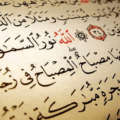 وَمَثَلًا مِّنَ
ٱللَّهُ نُورُ ٱلسَّمَٰوَ
هَا مِصْبَاحٌ ٱلْمِصْبَاحُ فِى زُجَا
جَرَةٍ مُّبَٰرَكَةٍ